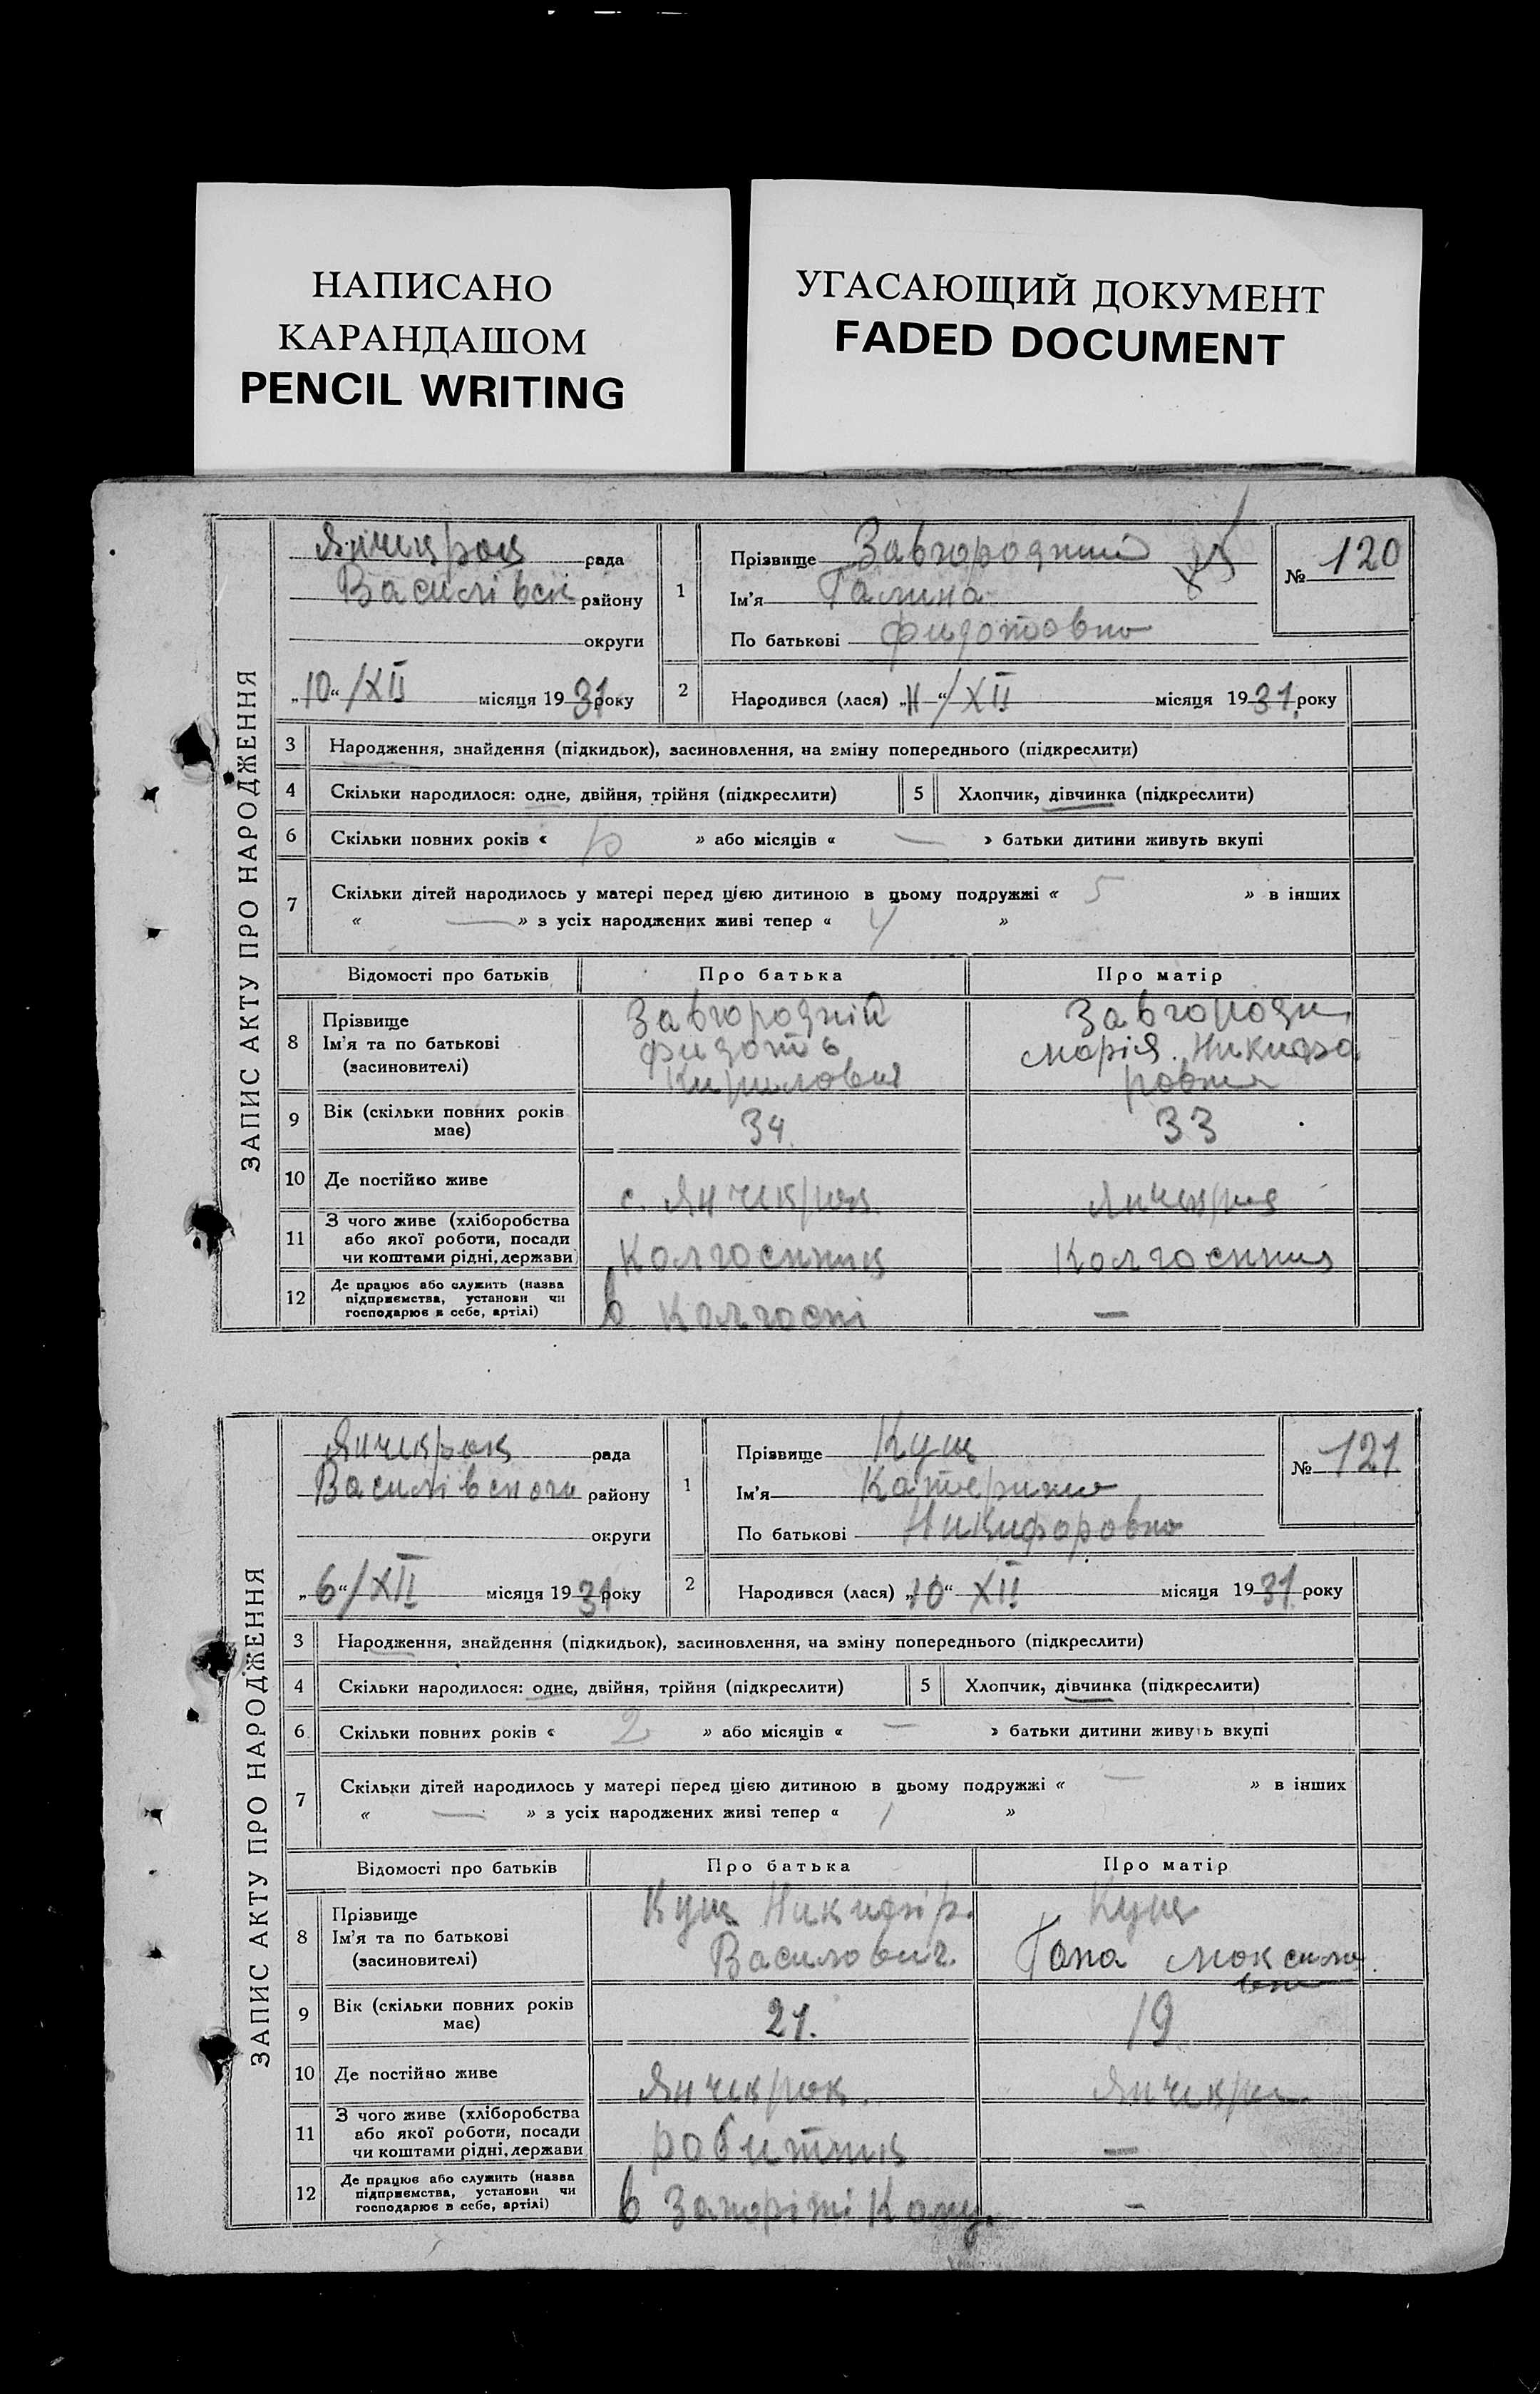 НАПИСАНО
КАРАНДАШОМ
PENCIL WRITING
УГАСАЮЩИЙ ДОКУМЕНТ
FADED DOCUMENT
ЗАПИС АКТУ ПРО НАРОДЖЕННЯ
Янчикрак рада
Василівск району
округи
„10“/XII місяця 1931 року
1 Прізвище Завгородний
Ім'я Галина
По батькові Фидотовна
№ 120
2 Народився (лася) „11“/XII місяця 1931 року
3 Народження, знайдення (підкидьок), засиновлення, на зміну попереднього (підкреслити)
4 Скільки народилося: одне, двійня, трійня (підкреслити) 5 Хлопчик, дівчинка (підкреслити)
6 Скільки повних років « » або місяців « — » батьки дитини живуть вкупі
7 Скільки дітей народилось у матері перед цією дитиною в цьому подружжі « 5 » в інших
« — » з усіх народжених живі тепер « 4 »
Відомості про батьків Про батька Про матір
8 Прізвище
Ім'я та по батькові
(засиновителі)
Завгородній
Фидоть
Кирилович
Завгородн
Марія Никифо
ровна
9 Вік (скільки повних років має) 34. 33
10 Де постійно живе с. Янчикрак Янчикрак
11 З чого живе (хліборобства
або якої роботи, посади
чи коштами рідні, держави)
Колгоспник Колгоспниц
12 Де працює або служить (назва
підприємства, установи чи
господарює в себе, артілі)
в Колгоспі —
ЗАПИС АКТУ ПРО НАРОДЖЕННЯ
Янчикрак рада
Василівского району
округи
„6“/XII місяця 1931 року
1 Прізвище Кущ
Ім'я Катерина
По батькові Никифоровна
№ 121
2 Народився (лася) „10“ XII місяця 1931 року
3 Народження, знайдення (підкидьок), засиновлення, на зміну попереднього (підкреслити)
4 Скільки народилося: одне, двійня, трійня (підкреслити) 5 Хлопчик, дівчинка (підкреслити)
6 Скільки повних років « 2 » або місяців « — » батьки дитини живуть вкупі
7 Скільки дітей народилось у матері перед цією дитиною в цьому подружжі « — » в інших
« — » з усіх народжених живі тепер « 1 »
Відомості про батьків Про батька Про матір
8 Прізвище
Ім'я та по батькові
(засиновителі)
Кущ Никифір.
Василович.
Кущ
Гана Максимо
вна
9 Вік (скільки повних років має) 21. 19
10 Де постійно живе Янчикрак. Янчикрак
11 З чого живе (хліборобства
або якої роботи, посади
чи коштами рідні, держави
робитник —
12 Де працює або служить (назва
підприємства, установи чи
господарює в себе, артілі)
в Запоріжі —